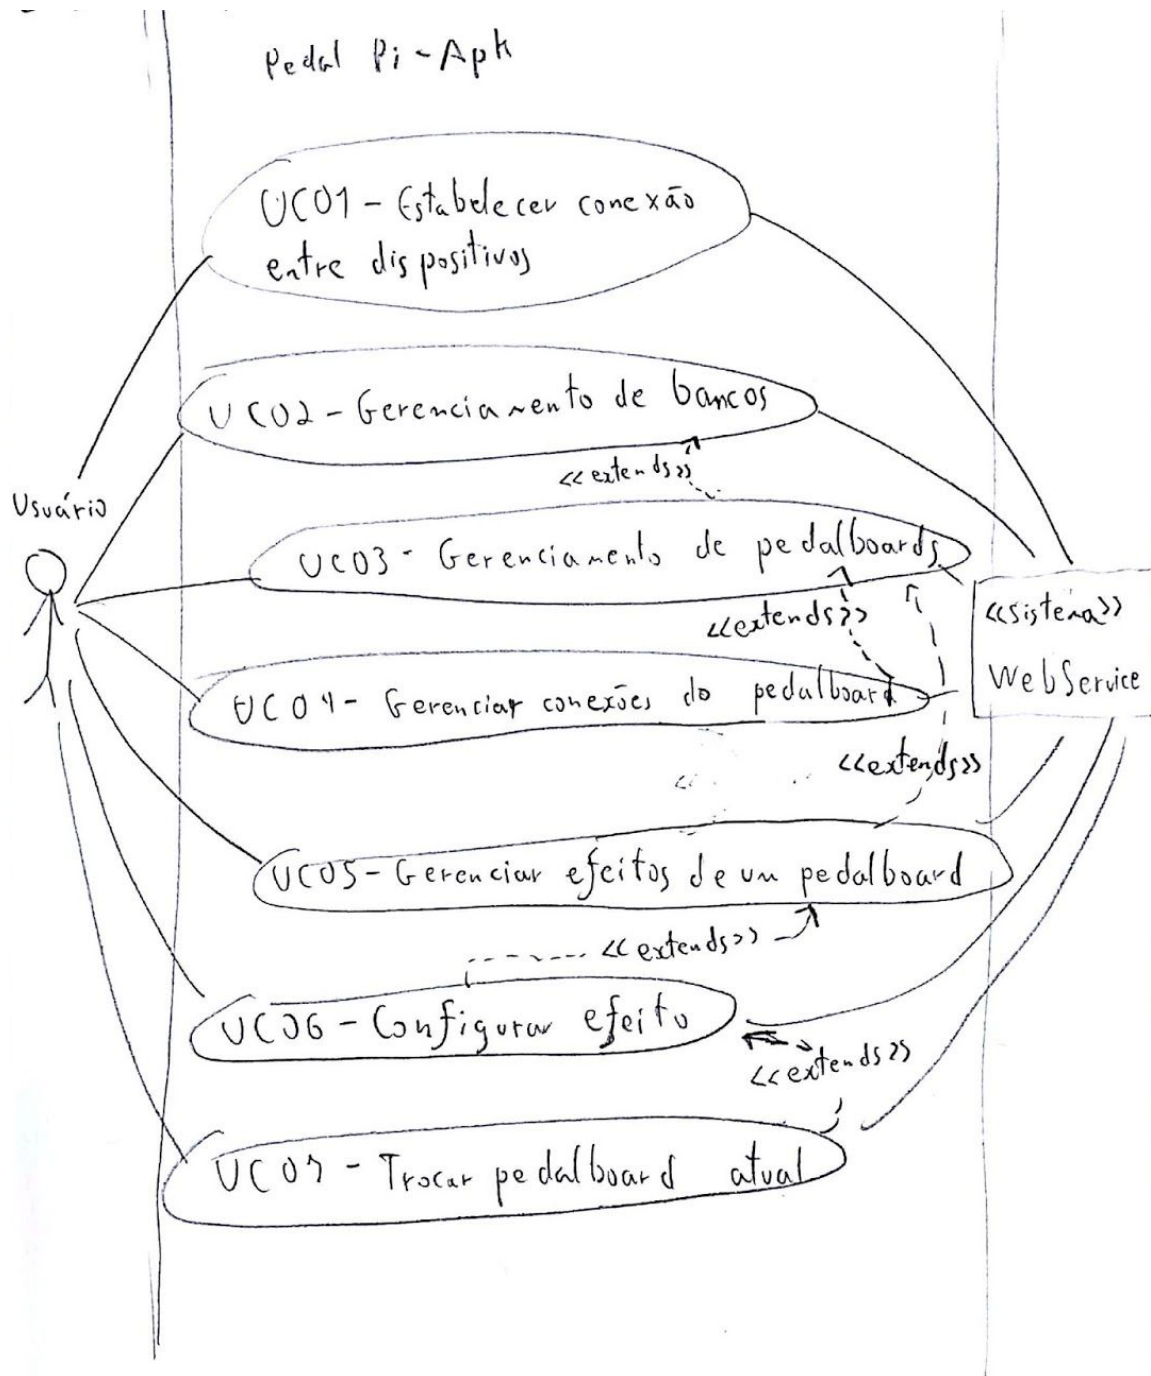 Pedal Pi-Apk
UC01 - Estabelecer conexão
entre dispositivos
UC02 - Gerenciamento de bancos
<<extends>>
Usuário
UC03 - Gerenciamento de pedalboards
<<extends>>
<<sistema>>
WebService
UC04 - Gerenciar conexões do pedalboard
<<extends>>
UC05 - Gerenciar efeitos de um pedalboard
<<extends>>
UC06 - Configurar efeito
<<extends>>
UC07 - Trocar pedalboard atual